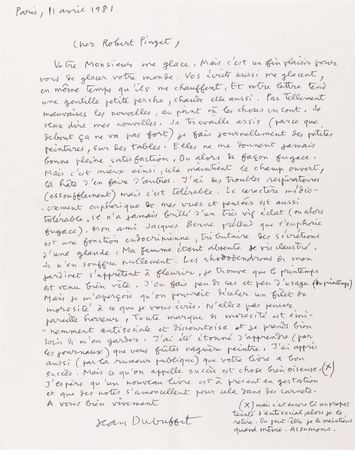 Paris, 11 avril 1981
Cher Robert Pinget,
Votre Monsieur me glace. Mais c'est un fin plaisir pour
vous de glacer votre monde. Vos écrits aussi me glacent,
en même temps qu'ils me chauffent. Et votre lettre tend
une gentille petite perche, chaude elle aussi. Pas tellement
mauvaises les nouvelles, au point où les choses en sont. Je
veux dire mes nouvelles. Je travaille assis (parce que
debout ça ne va pas fort) je fais journellement des petites
peintures, sur des tables. Elles ne me donnent jamais
bonne pleine satisfaction. Ou alors de façon fugace.
Mais c'est mieux ainsi, cela maintient le champ ouvert,
la hâte d'en faire d'autres. J'ai des troubles respiratoires
(essoufflement) mais c'est tolérable. Le caractère médio-
crement euphorique de mes vues et pensées est aussi
tolérable. Il n'a jamais brillé d'un très vif éclat (ou alors
fugace). Mon ami Jacques Berne prétend que l'euphorie
est une fonction endocrinienne, tributaire des sécrétions
d'une glande. Ma femme étant absente je vis claustré.
Je n'en souffre nullement. Les rhododendrons de mon
jardinet s'apprêtent à fleurir, je trouve que le printemps
est venu bien vite. J'en fais peu de cas et peu d'usage (du printemps)
Mais je m'aperçois qu'on pourrait déceler un filet de
morosité à ce que je vous écris. N'allez pas penser
pareille horreur. Toute marque de morosité est émi-
nemment antisociale et discourtoise et je prends bien
soin de m'en garder. J'ai été étonné d'apprendre (par
les journaux) que vous fûtes naguère peintre. J'ai appris
aussi (par la rumeur publique) que votre livre a bon
succès. Mais ce qu'on appelle succès est chose bien oiseuse. (X)
J'espère qu'un nouveau livre est à présent en gestation
et que des notes s'amoncellent pour cela dans des carnets.
A vous bien vivement
Jean Dubuffet
(X) mais c'est encore là un propos
teinté d'antisocial alors je le
retire. On peut-être je le maintiens
quand même. Assumons.